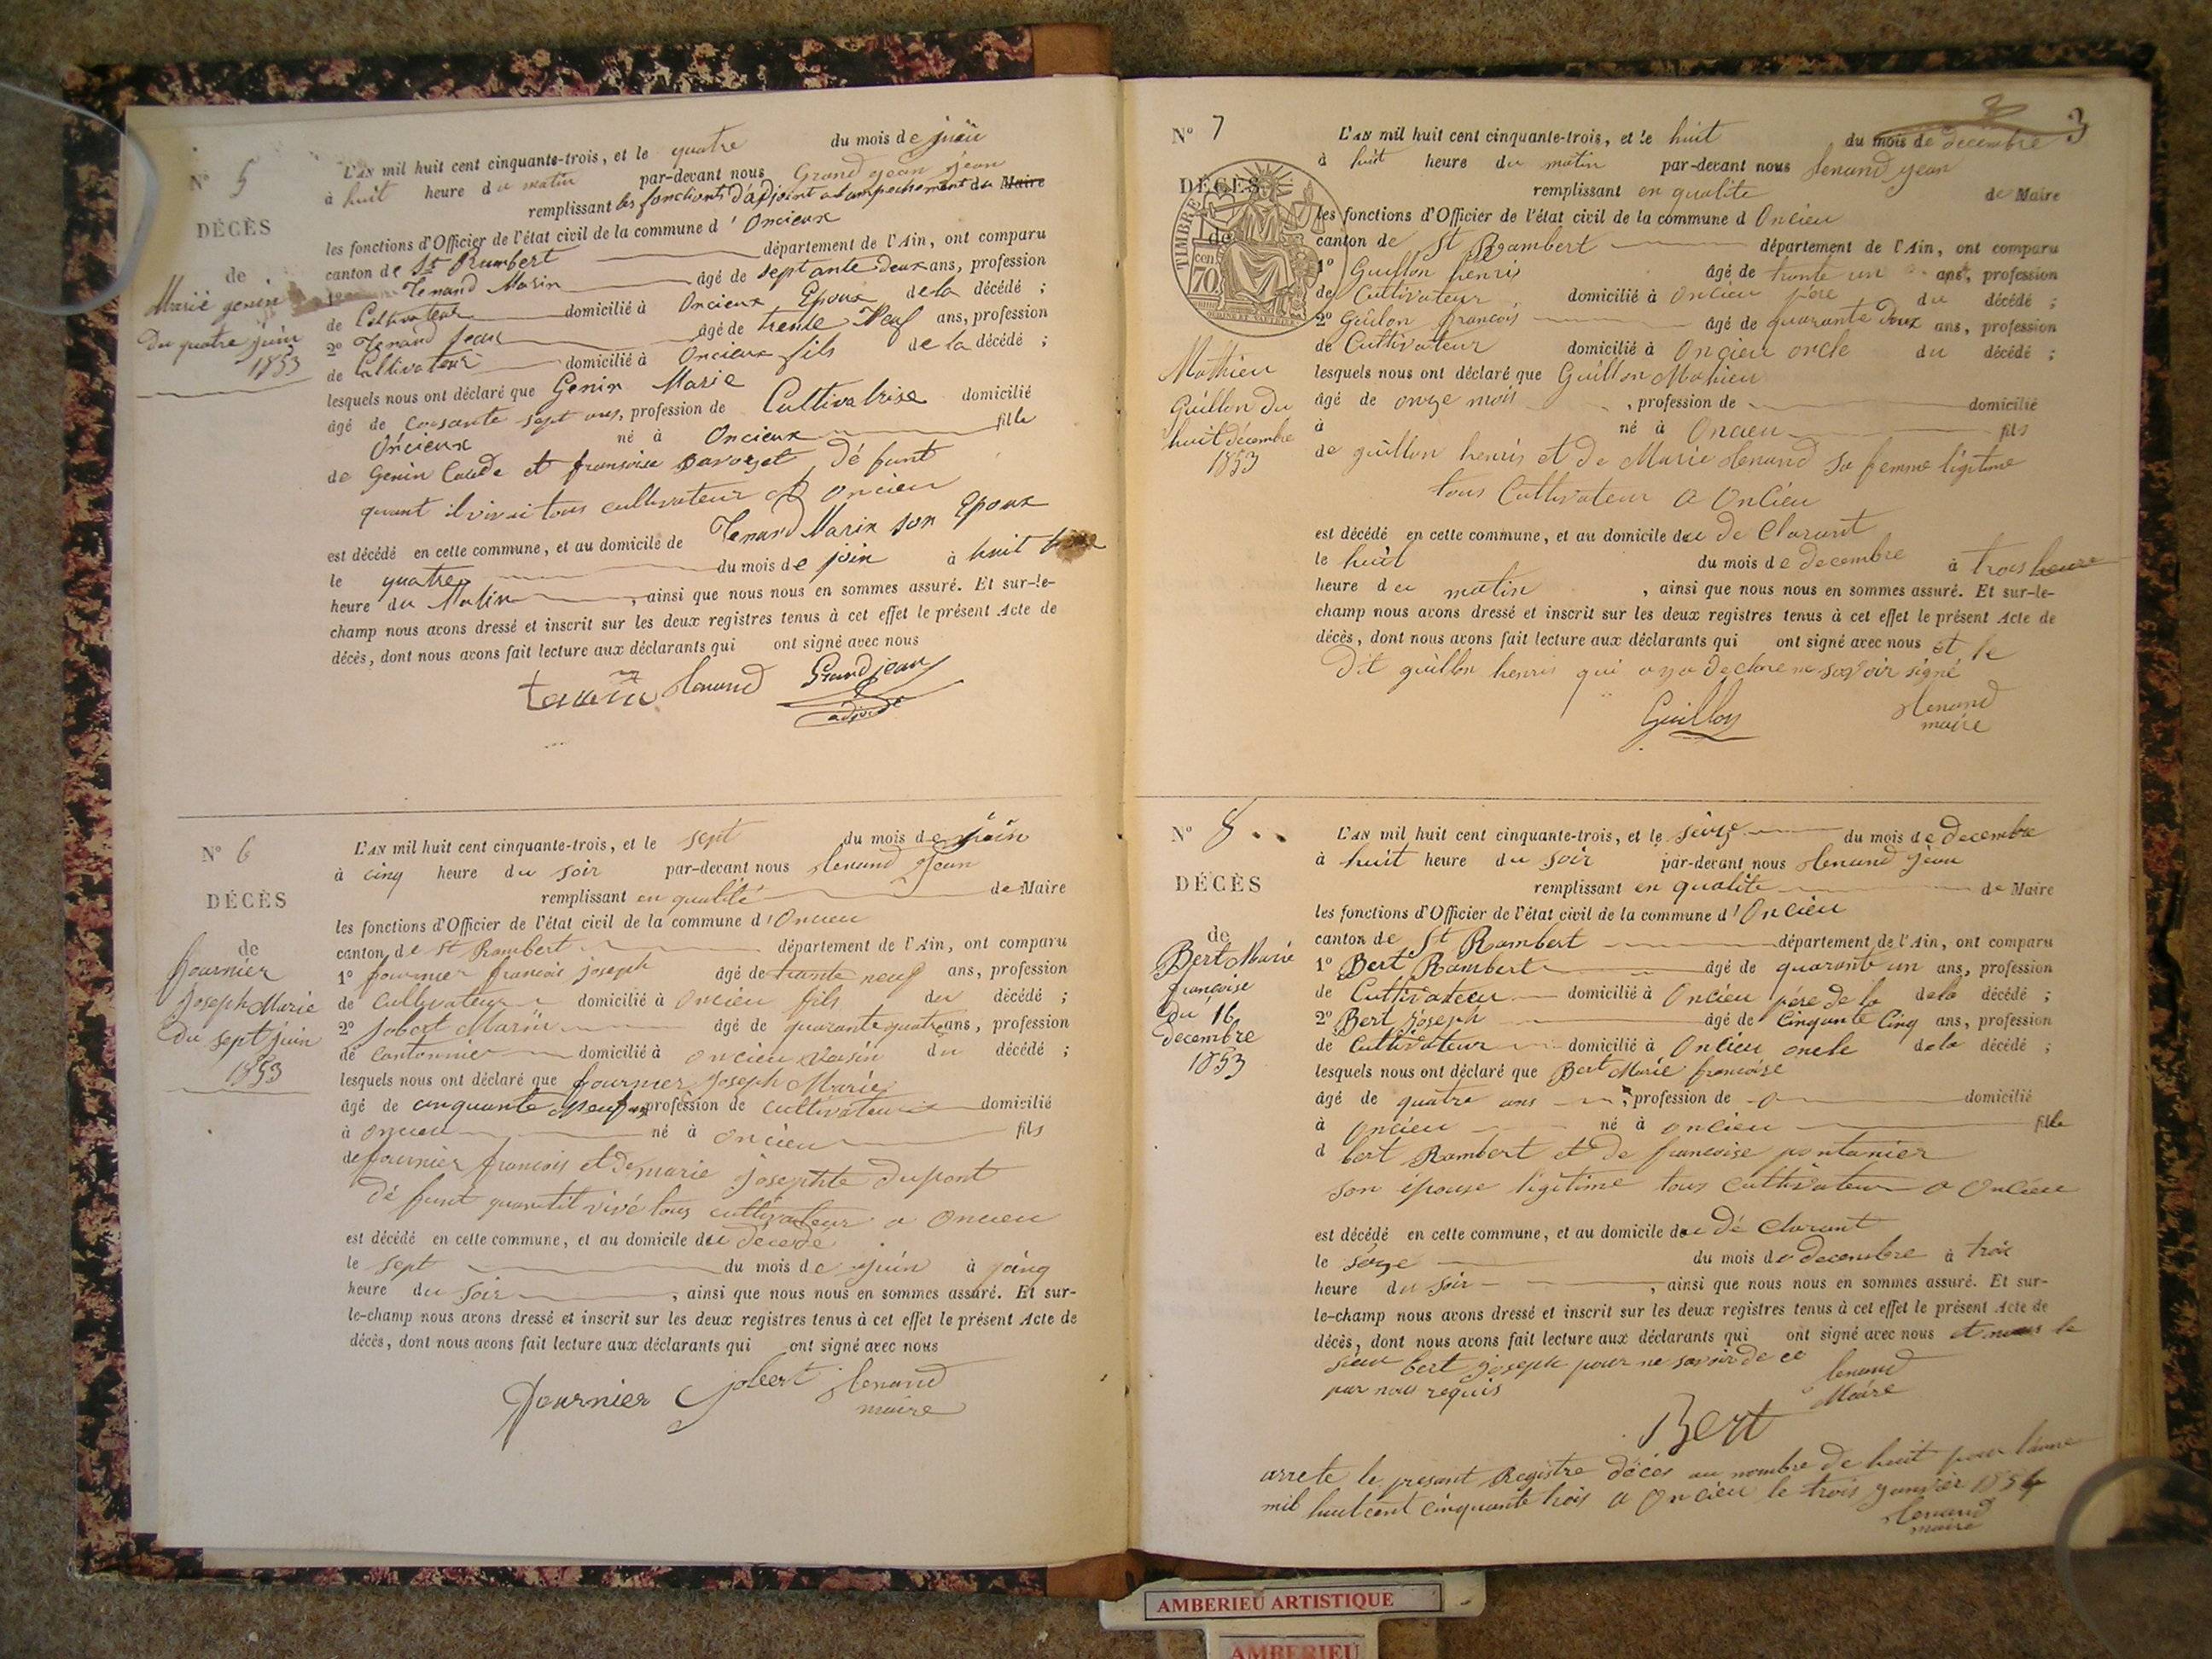 N° 5
DÉCÈS
de
Marie genin
du quatre juin
1853
L'AN mil huit cent cinquante-trois, et le quatre du mois de juin
à huit heure du matin par-devant nous Grand jean jean
remplissant les fonctions d'adjoint a lampechement du Maire
les fonctions d'Officier de l'état civil de la commune d'Oncieux
canton de St Rambert département de l'Ain, ont comparu
Tenand Marin âgé de septante deux ans, profession
de Cultivateur domicilié à Oncieux Epoux de la décédé ;
2° Tenand Jean âgé de trente Neuf ans, profession
de Cultivateur domicilié à Oncieux fils de la décédé ;
lesquels nous ont déclaré que Genin Marie
âgé de soisante sept ans, profession de Cultivatrise domicilié
Oncieux né à Oncieux fille
de Genin Claude et françoise Savarjet dé funt
quant il vivai tous cultivateur a oncieu
est décédé en cette commune, et au domicile de Tenand Marin son Epoux
le quatre du mois de join à huit
heure du Matin, ainsi que nous nous en sommes assuré. Et sur-le-
champ nous avons dressé et inscrit sur les deux registres tenus à cet effet le présent Acte de
décès, dont nous avons fait lecture aux déclarants qui ont signé avec nous
tenand Grandjean
adjoint
N° 6
DÉCÈS
de
fournier
Joseph Marie
Du sept juin
1853
L'AN mil huit cent cinquante-trois, et le sept du mois de juin
à cinq heure du soir par-devant nous tenand Jean
remplissant en qualité de Maire
les fonctions d'Officier de l'état civil de la commune d'Oncieu
canton de St Rambert département de l'Ain, ont comparu
1° fournier francois joseph âgé de trante neuf ans, profession
de cultivateur domicilié à Oncieu fils du décédé ;
2° Jobert Marin âgé de quarante quatre ans, profession
de cantonnier domicilié à oncieu voisin du décédé ;
lesquels nous ont déclaré que fournier Joseph Marie
âgé de cinquante Neuf ans profession de cultivateur domicilié
à oncieu né à oncieu fils
de fournier francois et de marie josephte dupont
dé funt quantil vivé tous cultivateur a oncieu
est décédé en cette commune, et au domicile du décédé
le sept du mois de juin à çinq
heure du soir, ainsi que nous nous en sommes assuré. Et sur-
le-champ nous avons dressé et inscrit sur les deux registres tenus à cet effet le présent Acte de
décès, dont nous avons fait lecture aux déclarants qui ont signé avec nous
fournier Jobert tenand
maire
3
N° 7
DÉCÈS
de
TIMBRE
cen. 70
Mathieu
Guillon Du
huit décembre
1853
L'AN mil huit cent cinquante-trois, et le huit du mois de decembre
à huit heure du matin par-devant nous tenand jean
remplissant en qualite de Maire
les fonctions d'Officier de l'état civil de la commune d Oncieu
canton de St Rambert département de l'Ain, ont comparu
1° Guillon henris âgé de trente un ans, profession
de Cultivateur domicilié à Oncieu père du décédé ;
2° Guillon francois âgé de quarante Deux ans, profession
de Cultivateur domicilié à Oncieu oncle du décédé ;
lesquels nous ont déclaré que Guillon Mahieu
âgé de onze mois, profession de domicilié
à né à Oncieu fils
de guillon henris et de Marie tenand sa femme légitime
tous Cultivateur a Oncieu
est décédé en cette commune, et au domicile du de Clarant
le huit du mois de decembre à trois heure
heure du matin, ainsi que nous nous en sommes assuré. Et sur-le-
champ nous avons dressé et inscrit sur les deux registres tenus à cet effet le présent Acte de
décès, dont nous avons fait lecture aux déclarants qui ont signé avec nous et le
Dit guillon henris qui a declare ne savoir signé
Guillon tenand
maire
N° 8
DÉCÈS
de
Bert Marie
françoise
du 16
decembre
1853
L'AN mil huit cent cinquante-trois, et le seize du mois de decembre
à huit heure du soir par-devant nous tenand jean
remplissant en qualite de Maire
les fonctions d'Officier de l'état civil de la commune d'Oncieu
canton de St Rambert département de l'Ain, ont comparu
1° Bert Rambert âgé de quarante un ans, profession
de Cultivateur domicilié à Oncieu pére de la dela décédé ;
2° Bert joseph âgé de Cinquante Cinq ans, profession
de Cultivateur domicilié à Oncieu oncle dela décédé ;
lesquels nous ont déclaré que Bert Marie francoise
âgé de quatre ans, profession de domicilié
à Oncieu né à oncieu fille
d bert Rambert et de francoise pontanier
son épouse légitime tous cultivateur a Oncieu
est décédé en cette commune, et au domicile du dé Clarant
le séze du mois de decembre à trois
heure du soir, ainsi que nous nous en sommes assuré. Et sur-
le-champ nous avons dressé et inscrit sur les deux registres tenus à cet effet le présent Acte de
décès, dont nous avons fait lecture aux déclarants qui ont signé avec nous et le
sieur bert joseph pour ne savoir de ce
par nous requis tenand
Maire
Bert
arrete le presant Registre décés au nombre de huit pour l'anne
mil huit cent cinquante trois a Oncieu le trois janvier 1854
tenand
maire
AMBERIEU ARTISTIQUE
AMBERIEU